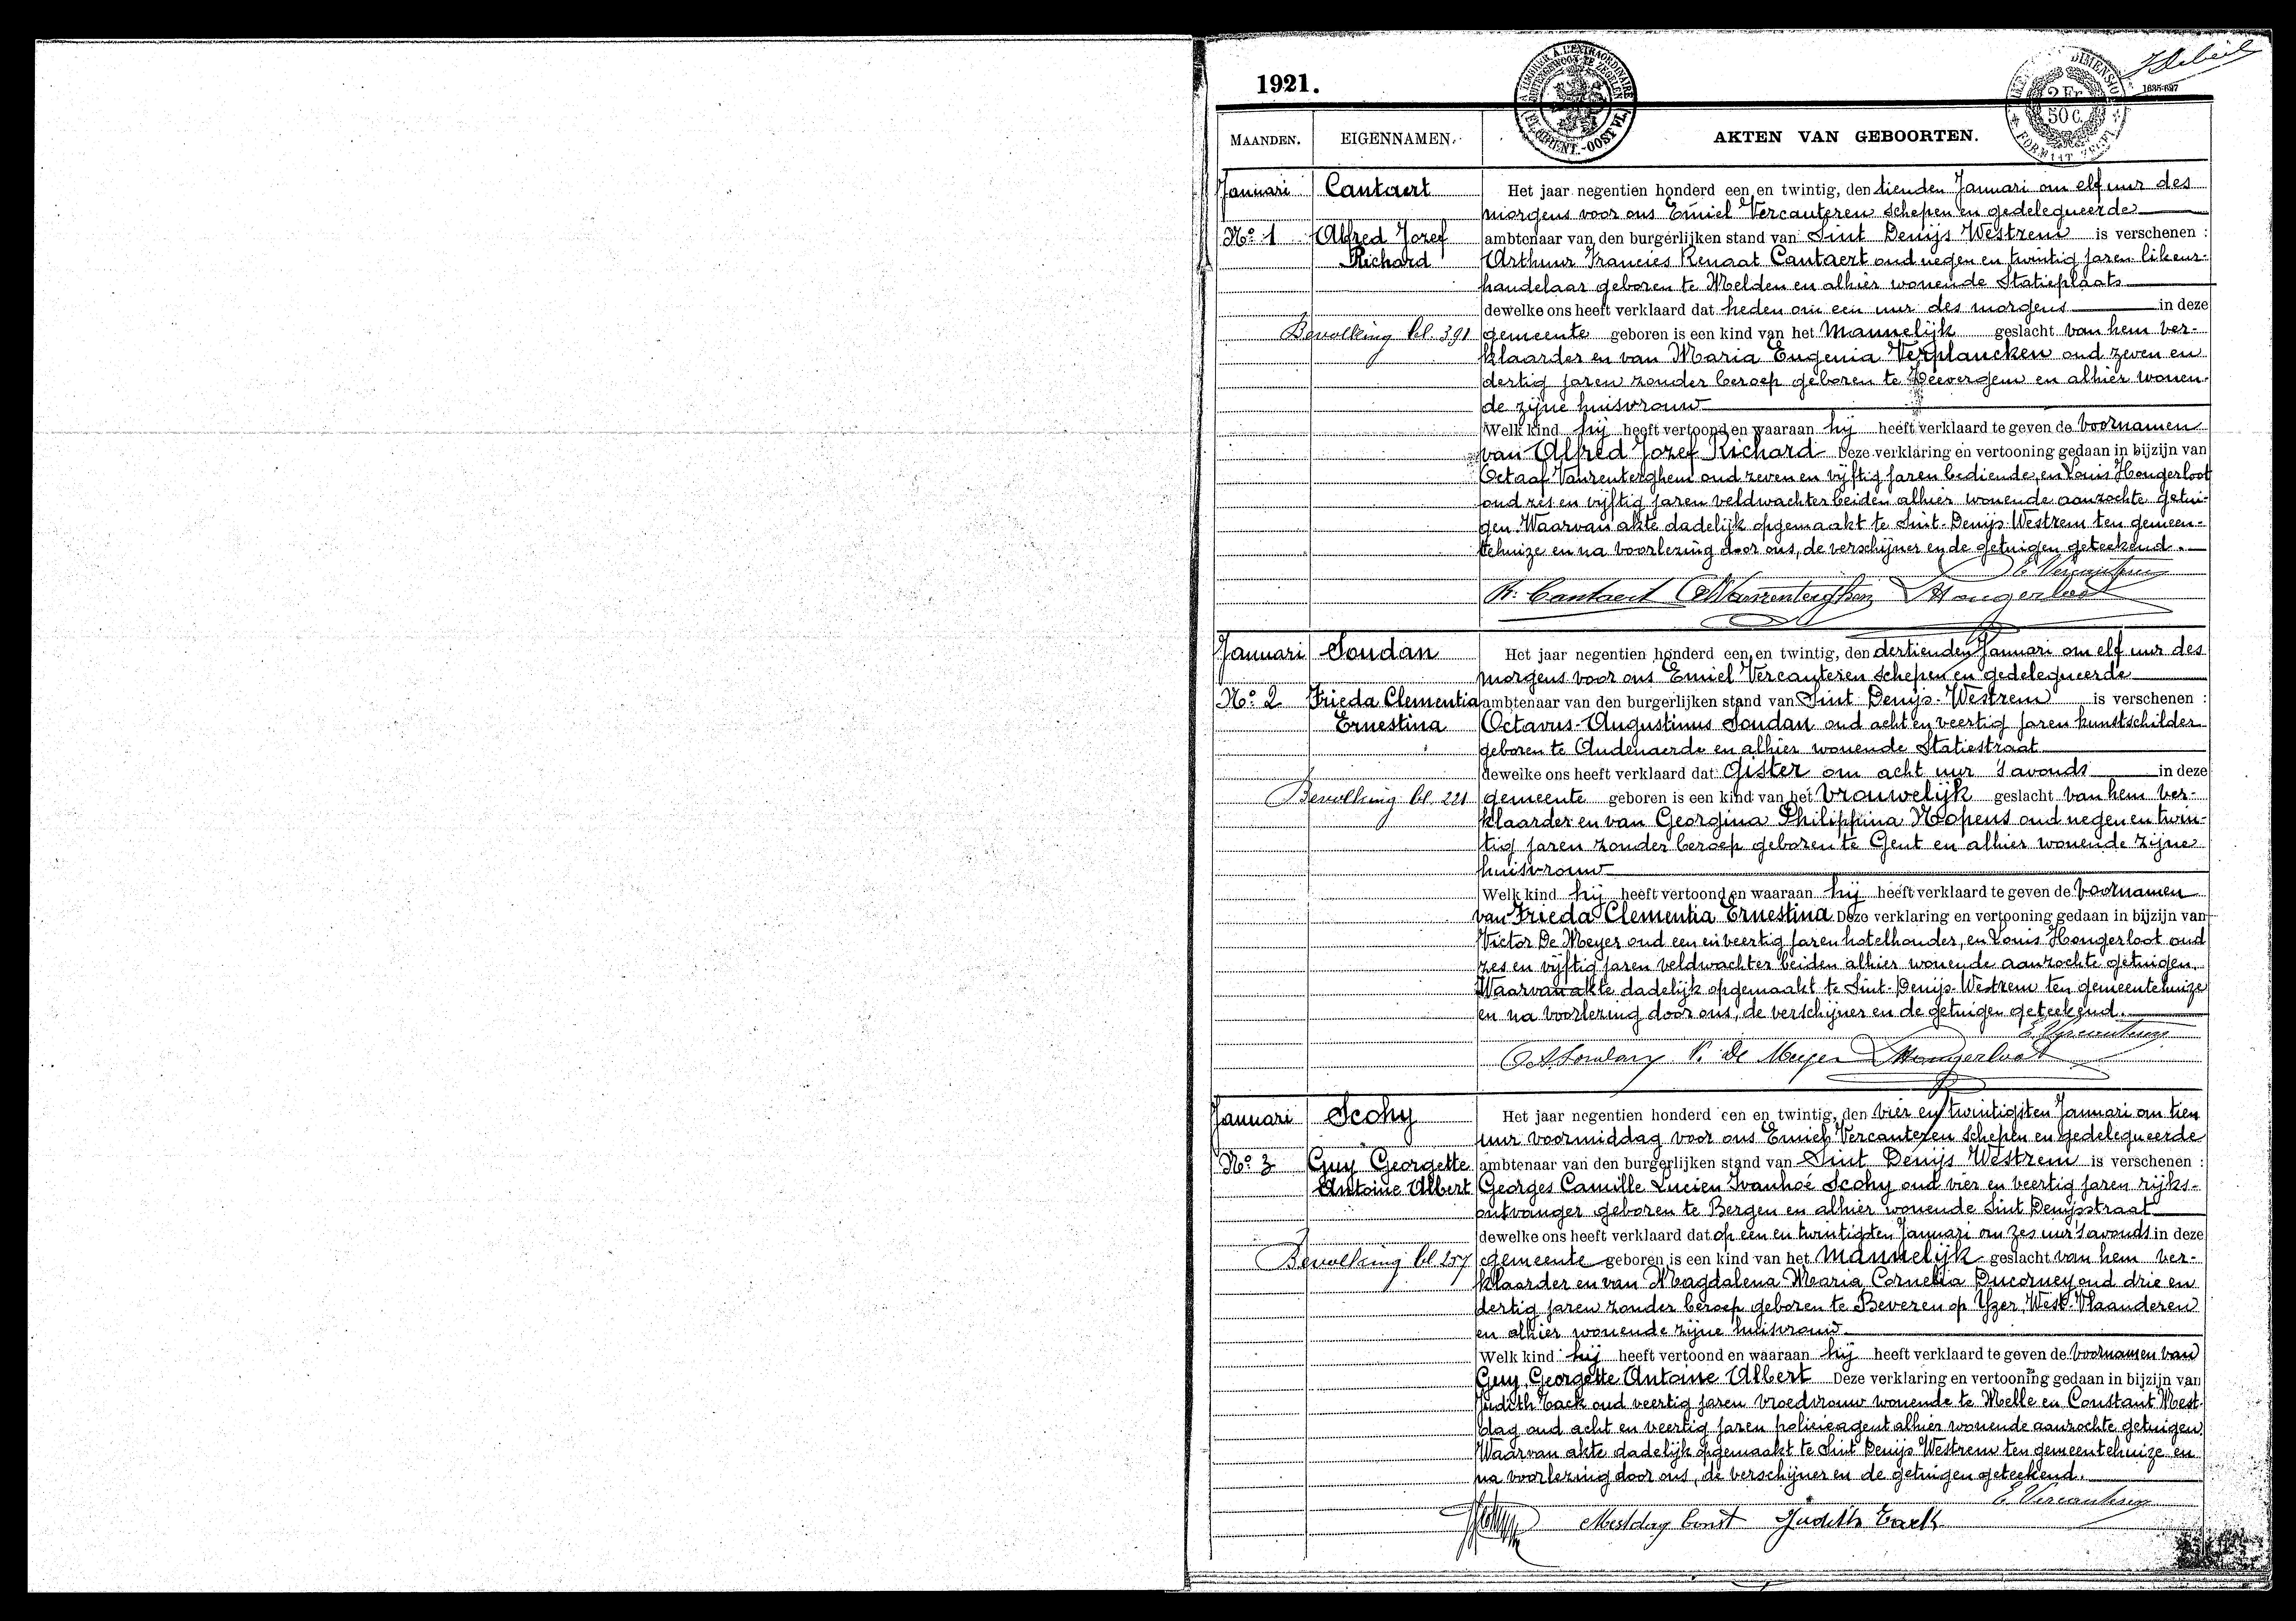 1921.
MAANDEN.
EIGENNAMEN.
AKTEN VAN GEBOORTEN.
A TIMBRER A L'EXTRAORDINAIRE
2 Fr
50 C.
1685-697
Januari
Cantaert
Nº 1
Alfred Jozef
Richard
Bevolking bl. 391
Het jaar negentien honderd een en twintig, den tienden Januari om elf uur des
morgens voor ons Emiel Vercauteren schepen en gedelegueerde
ambtenaar van den burgerlijken stand van Sint Denijs Westrem is verschenen :
Arthur Francies Renaat Cantaert oud negen en twintig jaren likeur-
handelaar geboren te Melden en alhier wonende Statieplaats
dewelke ons heeft verklaard dat heden om een uur des morgens in deze
gemeente geboren is een kind van het Mannelijk geslacht van hem ver-
klaarder en van Maria Eugenia Verplancken oud zeven en
dertig jaren zonder beroep geboren te Zeevergem en alhier wonen-
de zijne huisvrouw
Welk kind hij heeft vertoond en waaraan hij heeft verklaard te geven de voornamen
van Alfred Jozef Richard Deze verklaring en vertooning gedaan in bijzijn van
Octaaf Vanrenterghem oud zeven en vijftig jaren bediende, en Louis Hongerloot
oud zes en vijftig jaren veldwachter beiden alhier wonende aanzochte getui-
gen. Waarvan akte dadelijk opgemaakt te Sint-Denijs-Westrem ten gemeen-
tehuize en na voorlezing door ons, de verschijner en de getuigen geteekend.
E. Vercauteren
Cantaert Vanrenterghem Hongerloot
Januari
Soudan
Nº 2
Frieda Clementia
Ernestina
Bevolking bl. 221
Het jaar negentien honderd een en twintig, den dertienden Januari om elf uur des
morgens voor ons Emiel Vercauteren schepen en gedelegueerde
ambtenaar van den burgerlijken stand van Sint Denijs-Westrem is verschenen :
Octavus-Augustinus Soudan oud acht en veertig jaren kunstschilder
geboren te Audenaerde en alhier wonende Statiestraat
dewelke ons heeft verklaard dat Gister om acht uur 's avonds in deze
gemeente geboren is een kind van het Vrouwelijk geslacht van hem ver-
klaarder en van Georgina Philippina Nopens oud negen en twin-
tig jaren zonder beroep geboren te Gent en alhier wonende zijne
huisvrouw
Welk kind hij heeft vertoond en waaraan hij heeft verklaard te geven de voornamen
van Frieda Clementia Ernestina Deze verklaring en vertooning gedaan in bijzijn van
Victor De Meyer oud een en veertig jaren hotelhouder, en Louis Hongerloot oud
zes en vijftig jaren veldwachter beiden alhier wonende aanzochte getuigen.
Waarvan akte dadelijk opgemaakt te Sint-Denijs-Westrem ten gemeentehuize
en na voorlezing door ons, de verschijner en de getuigen geteekend.
E. Vercauteren
Soudan V. De Meyer Hongerloot
Januari
Scohy
Nº 3
Guy Georgette
Antoine Albert
Bevolking bl 257
Het jaar negentien honderd een en twintig, den vier en twintigsten Januari om tien
uur voormiddag voor ons Emiel Vercauteren schepen en gedelegueerde
ambtenaar van den burgerlijken stand van Sint Denijs Westrem is verschenen :
Georges Camille Lucien Ivanhoé Scohy oud vier en veertig jaren rijks-
ontvanger geboren te Bergen en alhier wonende Sint Denijsstraat
dewelke ons heeft verklaard dat op een en twintigsten Januari om zes uur 's avonds in deze
gemeente geboren is een kind van het Mannelijk geslacht van hem ver-
klaarder en van Magdalena Maria Cornelia Ducorney oud drie en
dertig jaren zonder beroep geboren te Beveren op Yzer, West-Vlaanderen
en alhier wonende zijne huisvrouw
Welk kind hij heeft vertoond en waaraan hij heeft verklaard te geven de voornamen van
Guy Georgette Antoine Albert Deze verklaring en vertooning gedaan in bijzijn van
Judith Tack oud veertig jaren vroedvrouw wonende te Melle en Constant Mest-
dag oud acht en veertig jaren policieagent alhier wonende aanzochte getuigen
Waarvan akte dadelijk opgemaakt te Sint Denijs Westrem ten gemeentehuize en
na voorlezing door ons, de verschijner en de getuigen geteekend.
E. Vercauteren
Mestdag Const Judith Tack